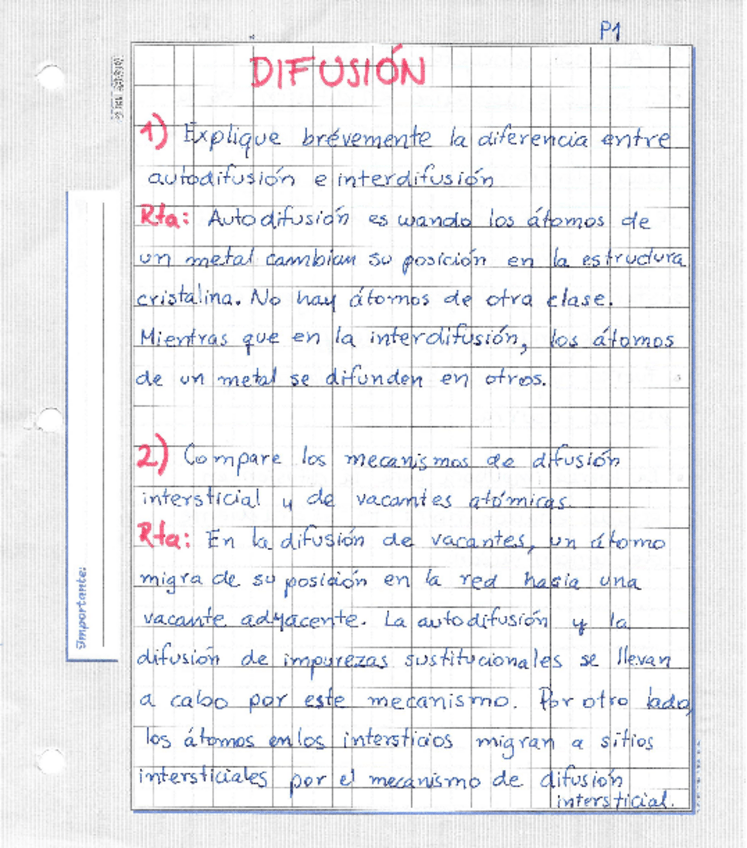 P1
DIFUSIÓN
1) Explique brevemente la diferencia entre
autodifusión e interdifusión
Rta: Autodifusión es cuando los átomos de
un metal cambian su posición en la estructura
cristalina. No hay átomos de otra clase.
Mientras que en la interdifusión, los átomos
de un metal se difunden en otros.
2) Compare los mecanismos de difusión
intersticial y de vacantes atómicas.
Rta: En la difusión de vacantes, un átomo
migra de su posición en la red hacia una
vacante adyacente. La autodifusión y la
difusión de impurezas sustitucionales se llevan
a cabo por este mecanismo. Por otro lado,
los átomos en los intersticios migran a sitios
intersticiales por el mecanismo de difusión
intersticial.
Importante: